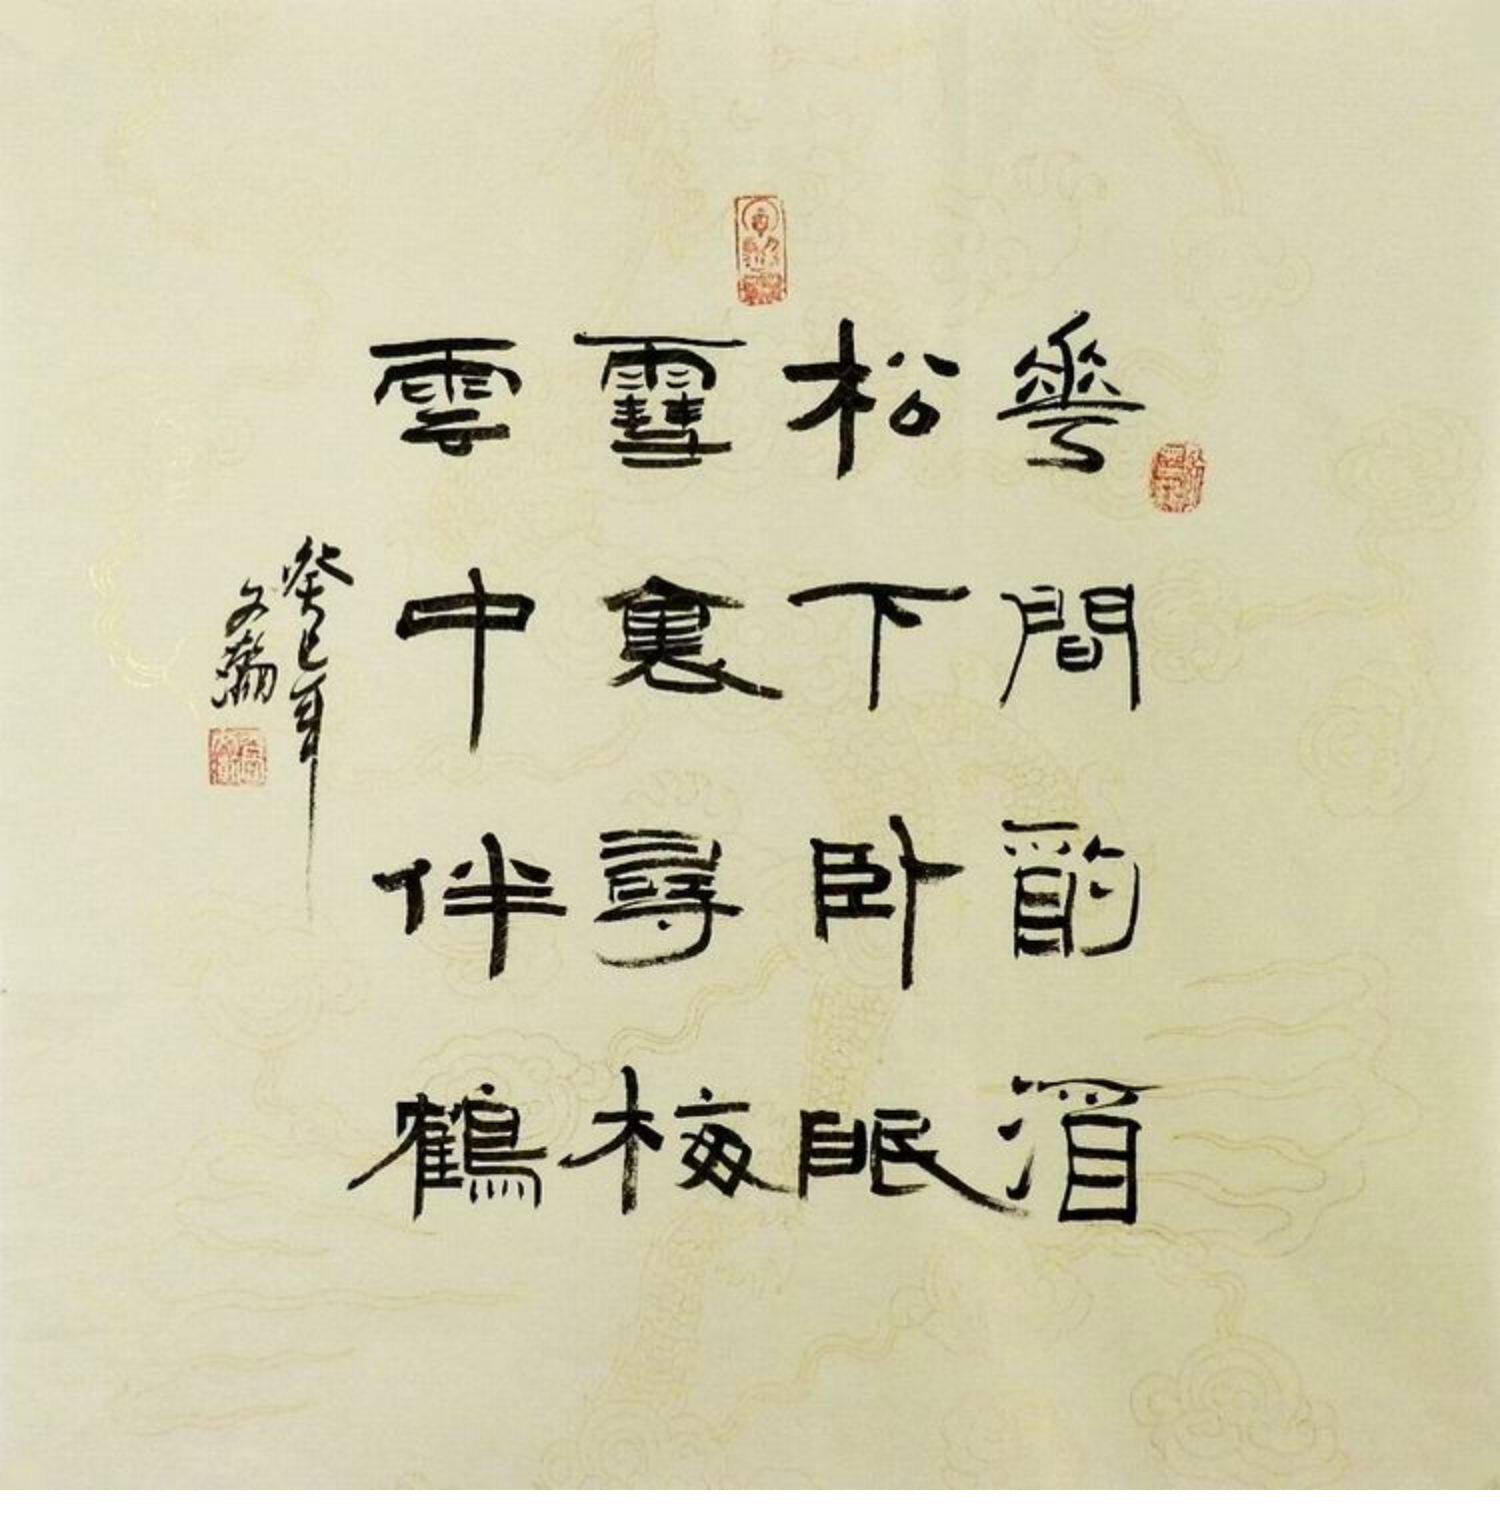 華間酌酒
松下卧眠
雪裏尋梅
雲中伴鶴
癸巳年
文瀚